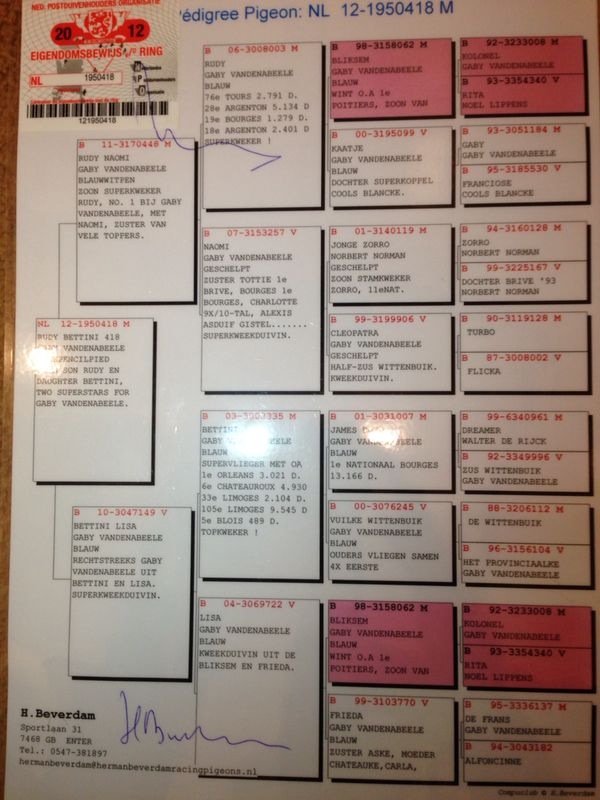 NED. POSTDUIVENHOUDERS ORGANISATIE
20 12
EIGENDOMSBEWIJS RING
NL 1950418
121950418
Pédigree Pigeon: NL 12-1950418 M
B 11-3170448 M
RUDY NAOMI
GABY VANDENABEELE
BLAUWWITPEN
ZOON SUPERKWEKER
RUDY, NO. 1 BIJ GABY
VANDENABEELE, MET
NAOMI, ZUSTER VAN
VELE TOPPERS.
NL 12-1950418 M
RUDY BETTINI 418
VANDENABEELE
SON RUDY EN
DAUGHTER BETTINI,
TWO SUPERSTARS FOR
GABY VANDENABEELE.
B 10-3047149 V
BETTINI LISA
GABY VANDENABEELE
BLAUW
RECHTSTREEKS GABY
VANDENABEELE UIT
BETTINI EN LISA.
SUPERKWEEKDUIVIN.
B 06-3008003 M
RUDY
GABY VANDENABEELE
BLAUW
76e TOURS 2.791 D.
28e ARGENTON 5.134 D
19e BOURGES 1.279 D.
18e ARGENTON 2.401 D
SUPERKWEKER !
B 07-3153257 V
NAOMI
GABY VANDENABEELE
GESCHELPT
ZUSTER TOTTIE 1e
BRIVE, BOURGES 1e
BOURGES, CHARLOTTE
9X/10-TAL, ALEXIS
ASDUIF GISTEL.......
SUPERKWEEKDUIVIN.
B 03-3003335 M
BETTINI
GABY
BLAUW
SUPERVLIEGER MET OA
1e ORLEANS 3.021 D.
6e CHATEAUROUX 4.930
33e LIMOGES 2.104 D.
105e LIMOGES 9.545 D
5e BLOIS 489 D.
TOPKWEKER !
B 04-3069722 V
LISA
GABY VANDENABEELE
BLAUW
KWEEKDUIVIN UIT DE
BLIKSEM EN FRIEDA.
B 98-3158062 M
BLIKSEM
GABY VANDENABEELE
BLAUW
WINT O.A 1e
POITIERS, ZOON VAN
B 00-3195099 V
KAATJE
GABY VANDENABEELE
BLAUW
DOCHTER SUPERKOPPEL
COOLS BLANCKE.
B 01-3140119 M
JONGE ZORRO
NORBERT NORMAN
GESCHELPT
ZOON STAMKWEKER
ZORRO, 11eNAT.
B 99-3199906 V
CLEOPATRA
GABY VANDENABEELE
GESCHELPT
HALF-ZUS WITTENBUIK.
KWEEKDUIVIN.
B 01-3031007 M
JAMES
GABY VANDENABEELE
BLAUW
1e NATIONAAL BOURGES
13.166 D.
B 00-3076245 V
VUILKE WITTENBUIK
GABY VANDENABEELE
BLAUW
OUDERS VLIEGEN SAMEN
4X EERSTE
B 98-3158062 M
BLIKSEM
GABY VANDENABEELE
BLAUW
WINT O.A 1e
POITIERS, ZOON VAN
B 99-3103770 V
FRIEDA
GABY VANDENABEELE
BLAUW
ZUSTER ASKE, MOEDER
CHATEAUKE,CARLA,
B 92-3233008 M
KOLONEL
GABY VANDENABEELE
B 93-3354340 V
RITA
NOEL LIPPENS
B 93-3051184 M
GABY
GABY VANDENABEELE
B 95-3185530 V
FRANCIOSE
COOLS BLANCKE.
B 94-3160128 M
ZORRO
NORBERT NORMAN
B 99-3225167 V
DOCHTER BRIVE '93
NORBERT NORMAN
B 90-3119128 M
TURBO
B 87-3008002 V
FLICKA
B 99-6340961 M
DREAMER
WALTER DE RIJCK
B 92-3349996 V
ZUS WITTENBUIK
GABY VANDENABEELE
B 88-3206112 M
DE WITTENBUIK
B 96-3156104 V
HET PROVINCIAALKE
GABY VANDENABEELE
B 92-3233008 M
KOLONEL
GABY VANDENABEELE
B 93-3354340 V
RITA
NOEL LIPPENS
B 95-3336137 M
DE FRANS
GABY VANDENABEELE
B 94-3043182
ALFONCINNE
H.Beverdam
Sportlaan 31
7468 GB ENTER
Tel.: 0547-381897
hermanbeverdam@hermanbeverdamracingpigeons.nl
Compuclub © H.Beverdam